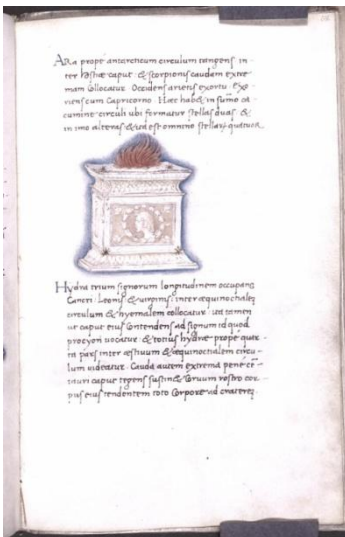 ARa prope antarcticum circulum tangens in-
ter hostiae caput & scorpionis caudam extre
mam collocatur. Occidens arietis exortu. Exo-
riens cum Capricorno. Haec habet in sum̄o ca-
cumine circuli ubi formatur stellas duas &
in imo alteras & ita est omnino stellarum quatuor.
Hydra trium signorum longitudinem occupans
Cancri. Leonis & virginis. inter aequinoctialem
circulum & hyemalem collocatur. ita tamen
ut caput eius contendens ad signum id quod
procyon vocatur & totius hydrae prope quar
ta pars inter aestivum & aequinoctialem circu-
lum videatur. Cauda autem extrema pene cen
tauri caput tegens sustinet Corvum rostro cor
pus eius tendentem toto Corpore ad craterem